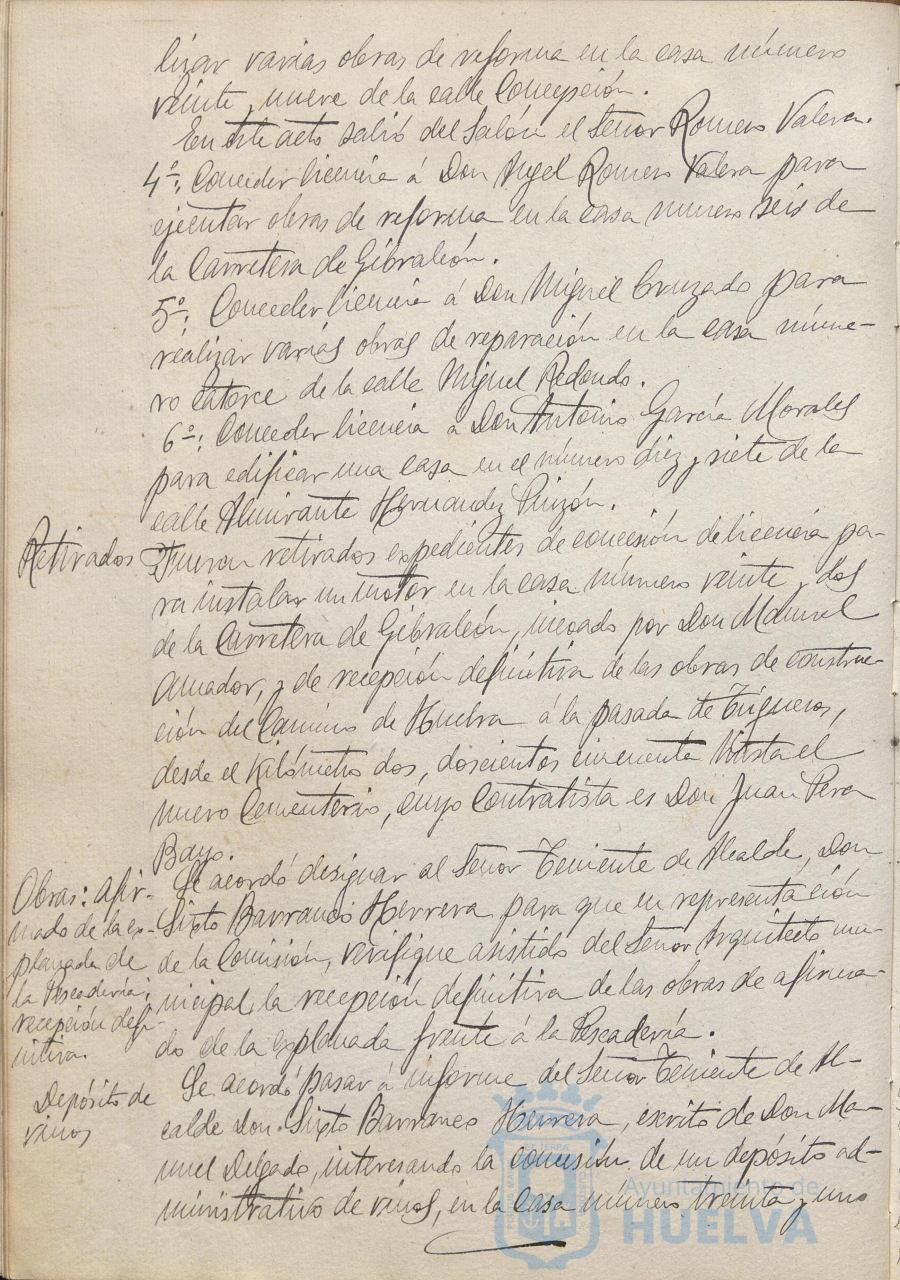 lizar varias obras de reforma en la casa número
veinte y nueve de la calle Concepción.
En este acto salió del Salón el Señor Romero Valera.
4º: Conceder licencia á Don Angel Romero Valera para
ejecutar obras de reforma en la casa número seis de
la Carretera de Gibraleón.
5º: Conceder licencia á Don Miguel Cruzado para
realizar varias obras de reparación en la casa núme-
ro catorce de la calle Miguel Redondo.
6º: Conceder licencia a Don Antonio García Morales
para edificar una casa en el número diez y siete de la
calle Almirante Hernandez Pinzón.
Retirados
Fueron retirados expedientes de concesión de licencia pa-
ra instalar un motor en la casa número veinte y dos
de la Carretera de Gibraleón, incoado por Don Manuel
Amador, y de recepción definitiva de las obras de construc-
ción del Camino de Huelva á la pasada de Trigueros,
desde el Kilómetro dos, doscientos cincuenta hasta el
nuevo Cementerio, cuyo Contratista es Don Juan Pera
Bayo.
Obras: afir-
mado de la ex-
planada de
la Pescadería;
recepción defi-
nitiva.
Se acordó designar al Señor Teniente de Alcalde, Don
Sixto Barranco Herrera para que en representación
de la Comisión, verifique asistido del Señor Arquitecto mu-
nicipal, la recepción definitiva de las obras de afirma-
do de la explanada frente á la Pescadería.
Depósito de
vinos
Se acordó pasar á informe del Señor Teniente de Al-
calde Don Sixto Barranco Herrera, escrito de Don Ma-
nuel Delgado, interesando la concesión de un depósito ad-
ministrativo de vinos, en la casa número treinta y uno
Ayuntamiento de
HUELVA